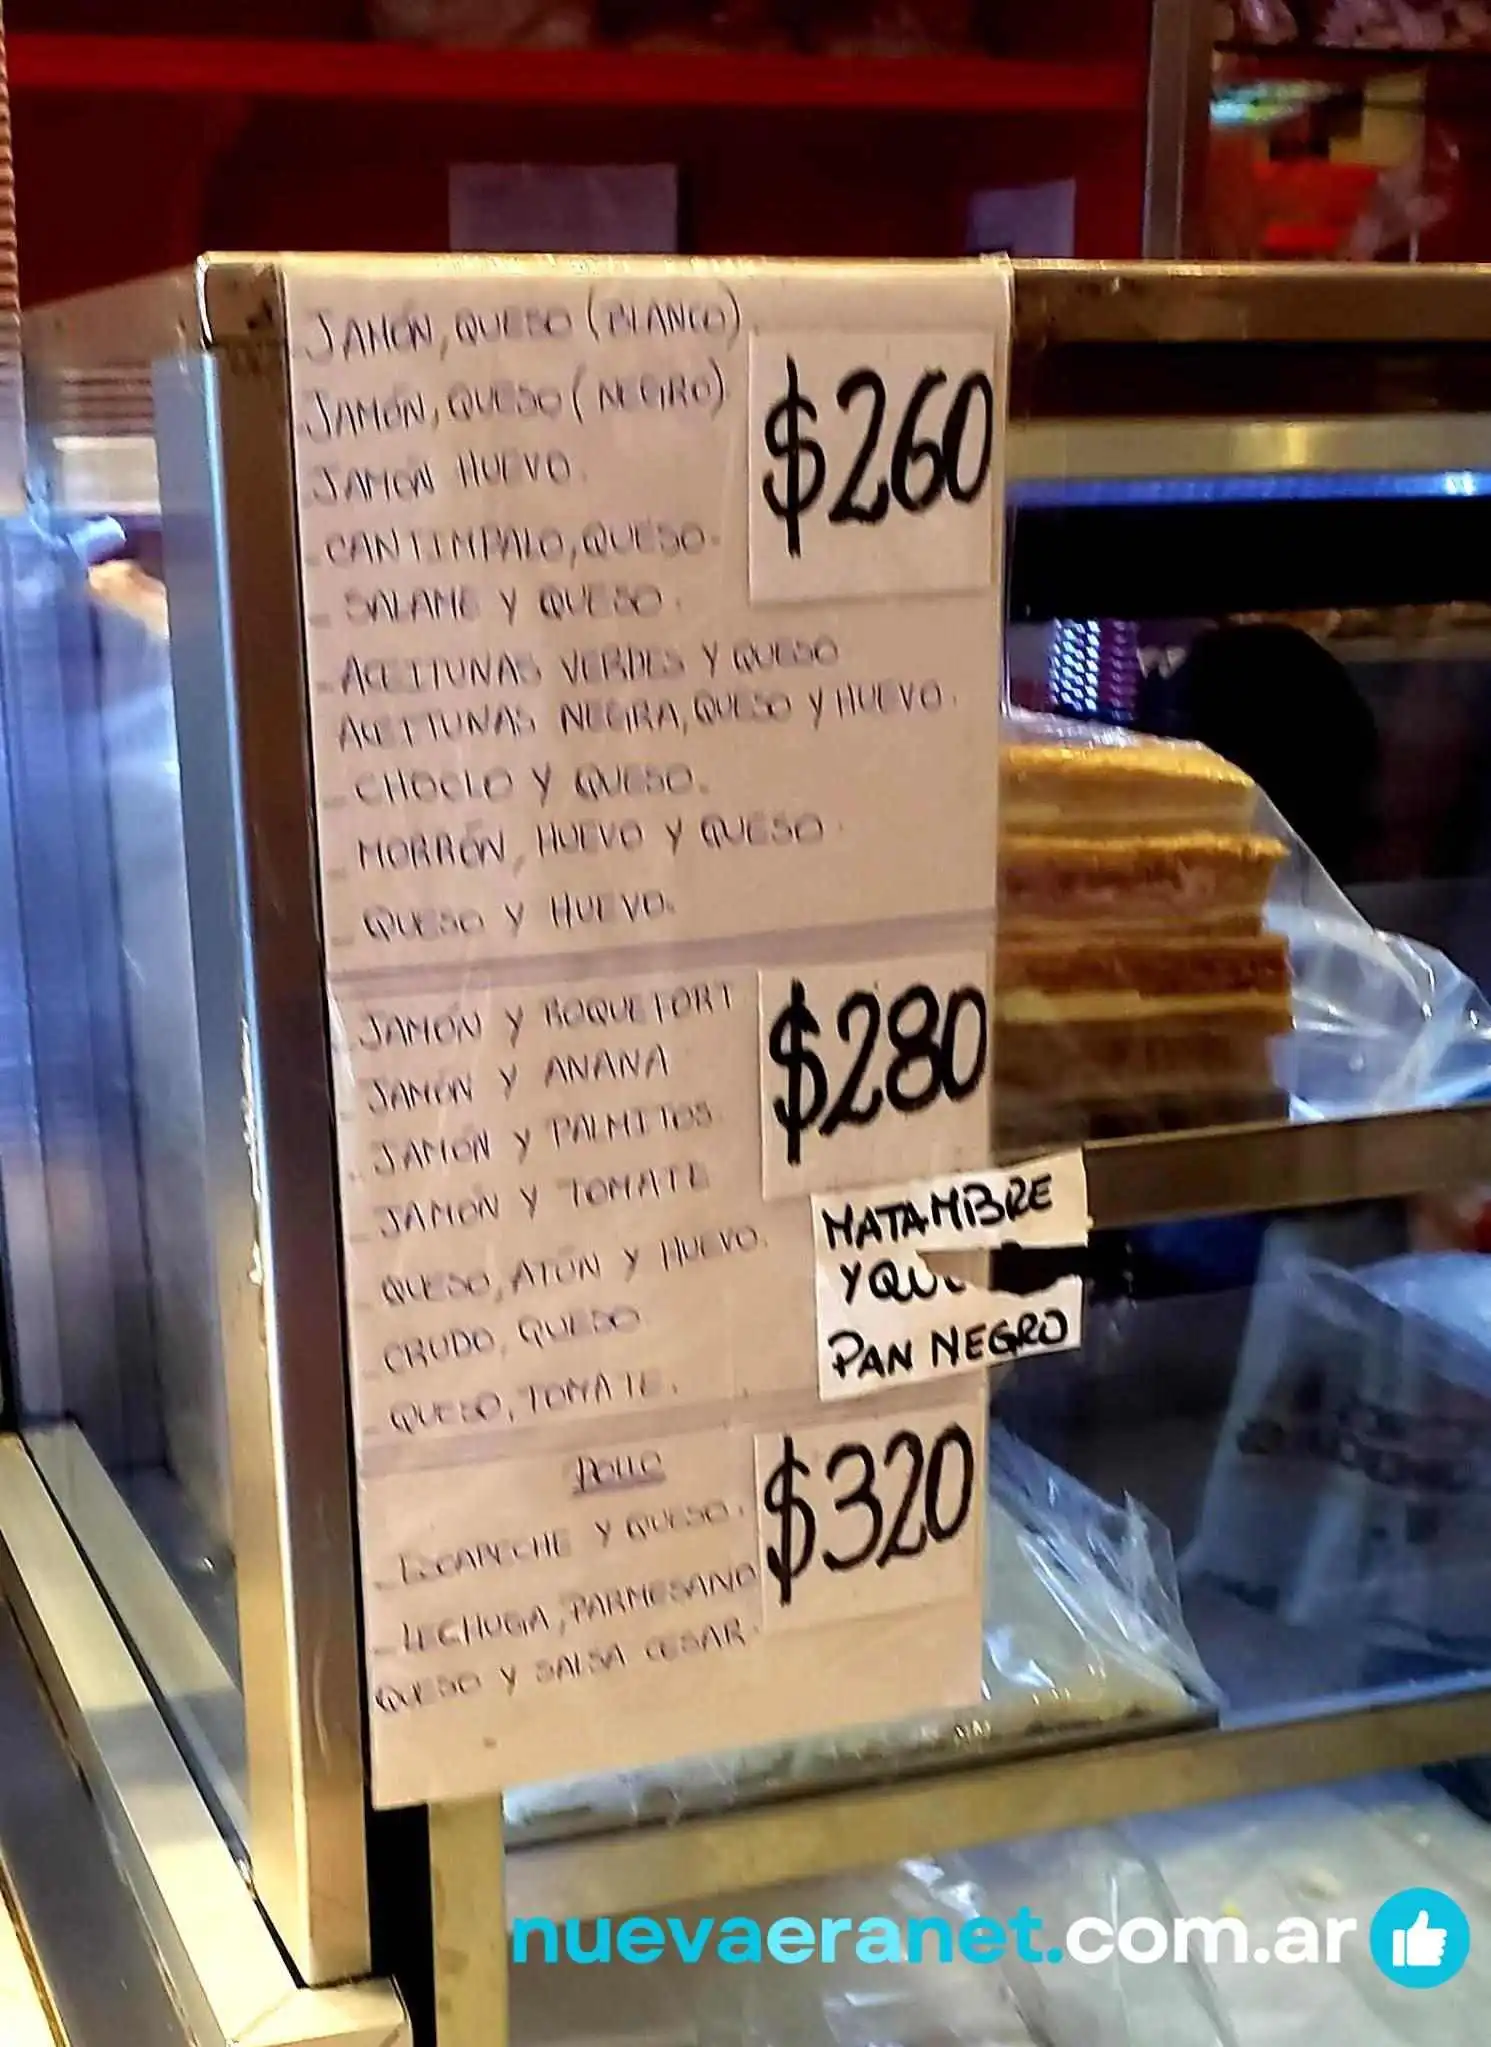 JAMÓN, QUESO (BLANCO).
JAMÓN, QUESO (NEGRO)
JAMÓN HUEVO.
- CANTIMPALO, QUESO.
- SALAME Y QUESO.
- ACEITUNAS VERDES Y QUESO
ACEITUNAS NEGRA, QUESO Y HUEVO.
- CHOCLO Y QUESO.
- MORRÓN, HUEVO Y QUESO.
- QUESO Y HUEVO.
$260
- JAMÓN Y ROQUEFORT
- JAMÓN Y ANANA
- JAMÓN Y PALMITOS.
- JAMÓN Y TOMATE
- QUESO, ATÚN Y HUEVO.
- CRUDO, QUESO
- QUESO, TOMATE.
$280
MATAMBRE
Y
PAN NEGRO
POLLO
- ESCAPECHE Y QUESO.
- LECHUGA, PARMESANO
QUESO Y SALSA CESAR.
$320
nuevaeranet.com.ar